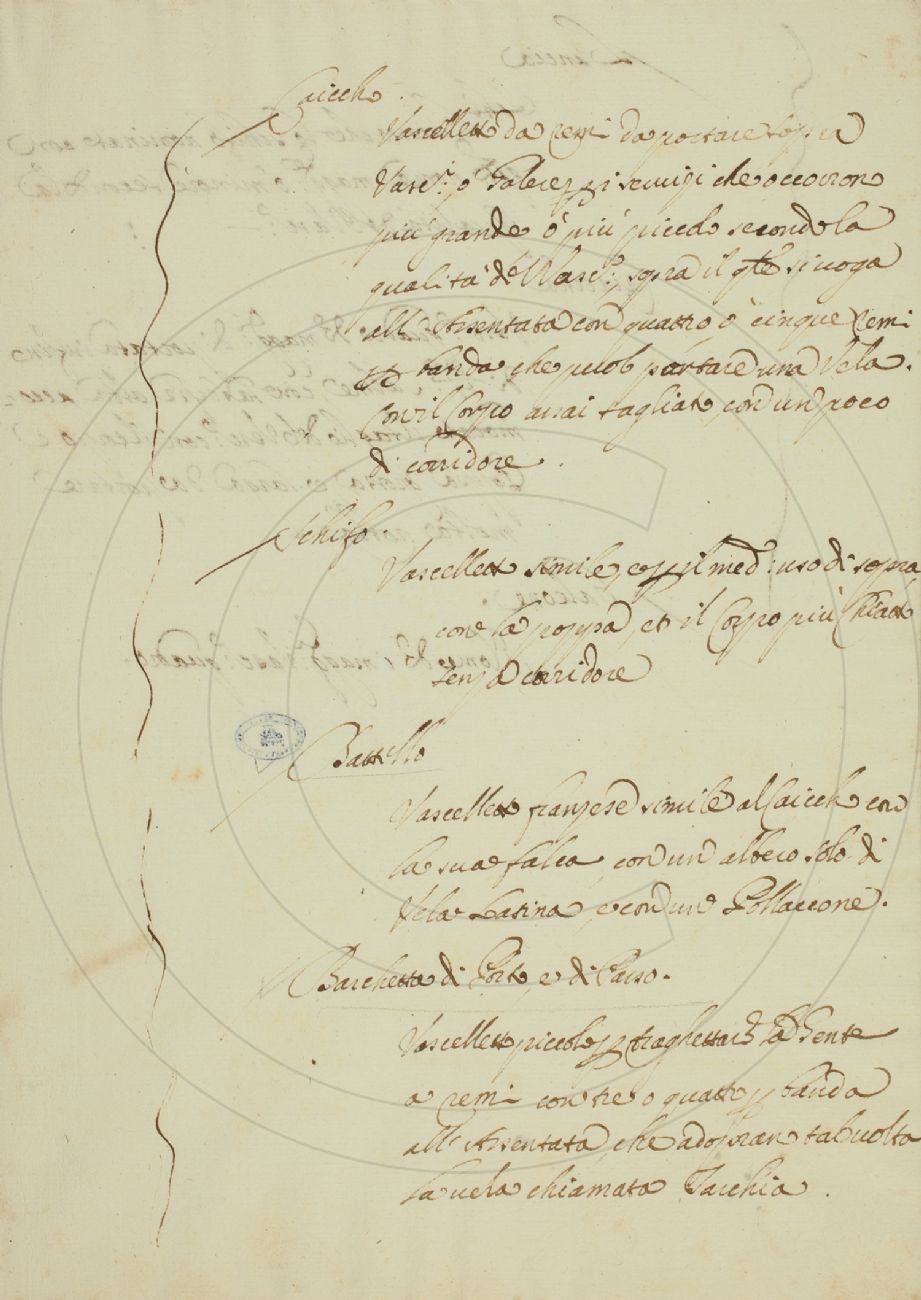 Caiccho.
Vascelletto da remi da portare sopra
Vasc.i o Galere p i servizi che occorrono
più grande ò più piccolo secondo la
qualità de Vasc.i, sopra il qle si voga
all'Assentata con quattro, o cinque remi
p banda che puol portare una Vela.
Con il Corpo assai tagliato, con un poco
di corridore.
Schifo.
Vascelletto simile, e p il med. uso di sopra
con la poppa, et il Corpo più Chiatto
senza corridore
Battello
Vascelletto franzese simile al Caiccho con
la sua falca, con un albero solo di
Vela Latina, e con un Pollaccone.
Barchetta di Porto, e di Passo.
Vascelletto piccolo p traghettare la Gente
a remi con tre o quattro p banda
all'Assentata, che adoprano tal volta
la vela chiamata Tacchia.